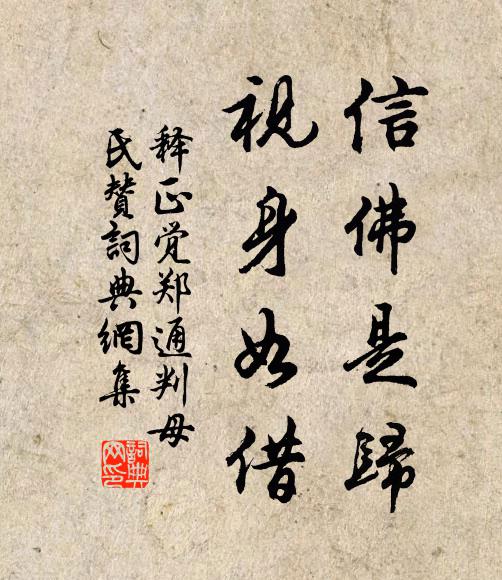 信佛是歸
視身如借
释正觉郑通判母
氏贊詞典網集
詞典
网印